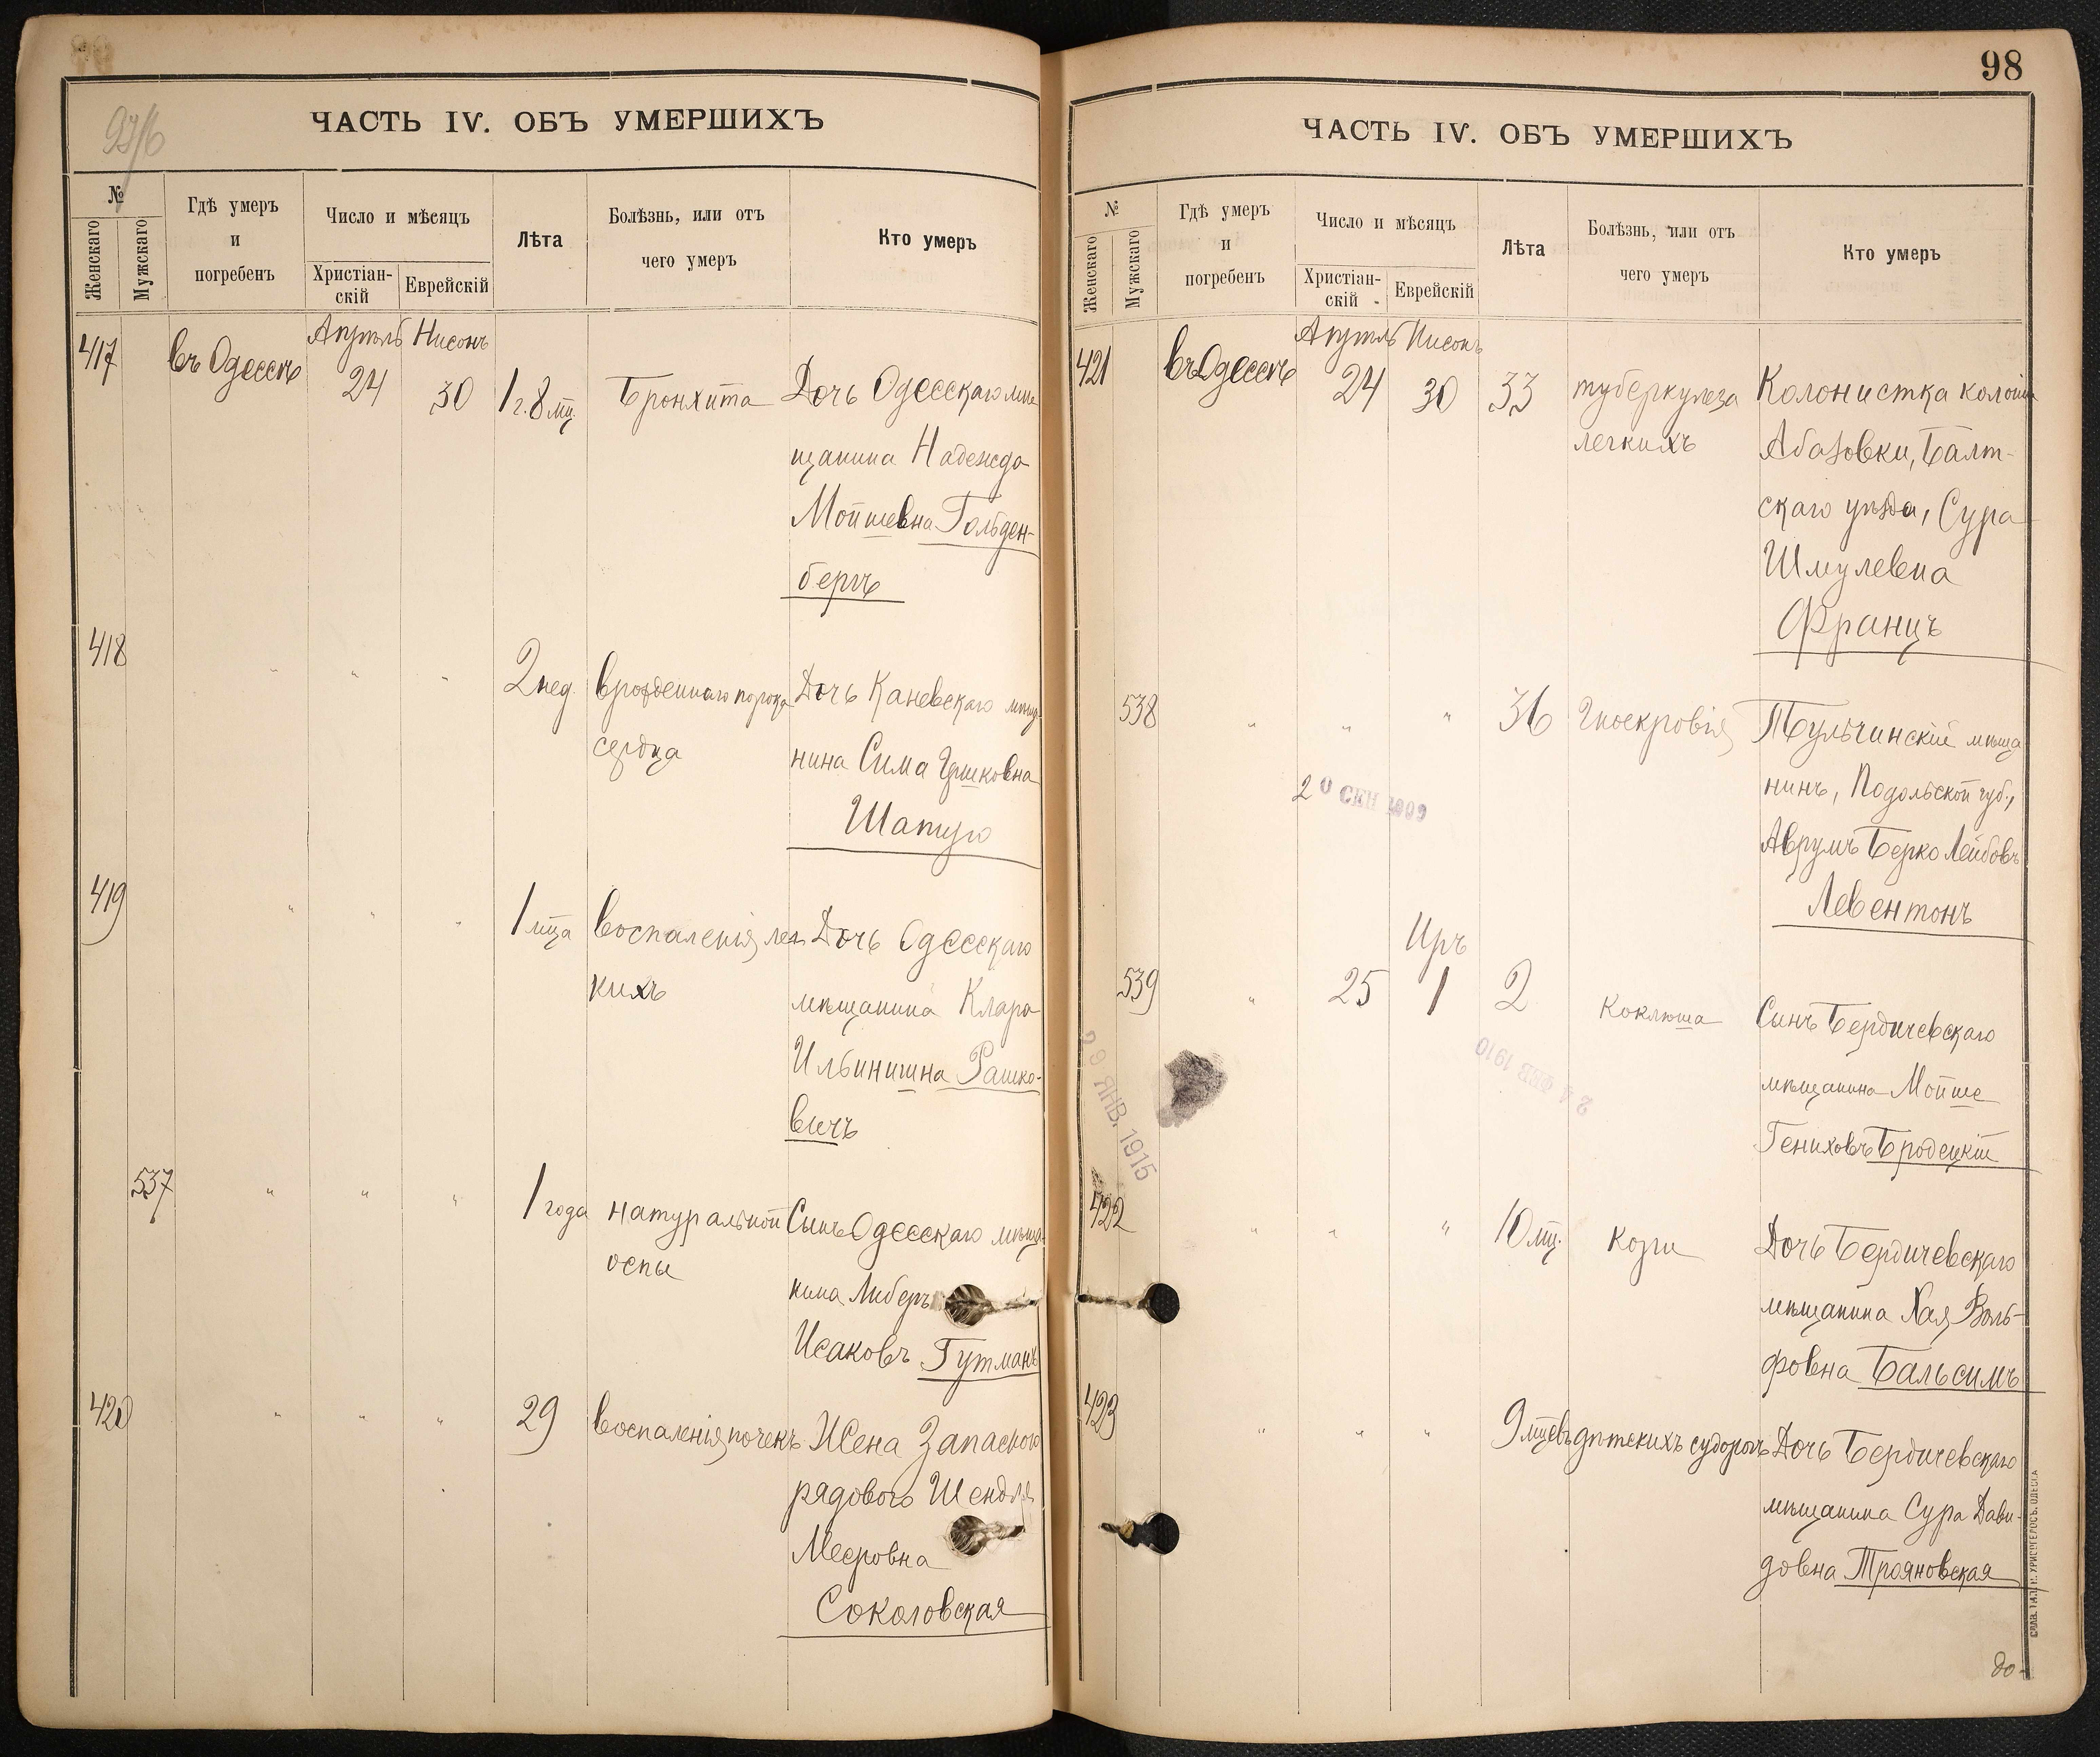 ЧАСТЬ IV. ОБЪ УМЕРШИХЪ
№
Женскаго
Мужскаго
Гдѣ умеръ
и
погребенъ
Число и мѣсяцъ
Христіан-
скій
Еврейскій
Лѣта
Болѣзнь, или отъ
чего умеръ
Кто умеръ
Апрѣль Нисонъ
417 въ Одессѣ 24 30 1 г. 8 мц. Бронхита Дочь Одесскаго мѣ
щанина Надежда
Мойшевна Гольден-
бергъ
418 " " " 2 нед. врожденнаго порока Дочь Каневскаго мѣща
сердца нина Сима Гершковна
Шапиро
419 " " " 1 мца воспаленія лег Дочь Одесскаго
кихъ мѣщанина Клара
Ильинишна Рашко-
вичъ
537 " " " 1 года натуральной Сынъ Одесскаго мѣща-
оспы нина Либеръ
Исаковъ Гутманъ
420 " " " 29 воспаленія почекъ Жена Запаснаго
рядового Шендля
Мееровна
Соколовская
98
ЧАСТЬ IV. ОБЪ УМЕРШИХЪ
№
Женскаго
Мужскаго
Гдѣ умеръ
и
погребенъ
Число и мѣсяцъ
Христіан-
скій
Еврейскій
Лѣта
Болѣзнь, или отъ
чего умеръ
Кто умеръ
Апрѣль Нисонъ
421 въ Одессѣ 24 30 33 туберкулеза Колонистка колоніи
легкихъ Абазовки, Балт-
скаго уѣзда, Сура
Шмулевна
Францъ
538 " " " 36 Гноекровія Тульчинскій мѣща
нинъ, Подольской губ.,
20 СЕН 1909
Аврумъ Берко Лейбовъ
Левентонъ
Иръ
539 " 25 1 2 Коклюша Сынъ Бердичевскаго
мѣщанина Мойше
Гениховъ Бродецкій
24 ФЕВ 1910
29 ЯНВ. 1915
422 " " " 10 мц. Кори Дочь Бердичевскаго
мѣщанина Хая Воль-
фовна Бальсимъ
423 " " " 9 мцевъ дѣтскихъ судорогъ Дочь Бердичевскаго
мѣщанина Сура Дави-
довна Трояновская
до-